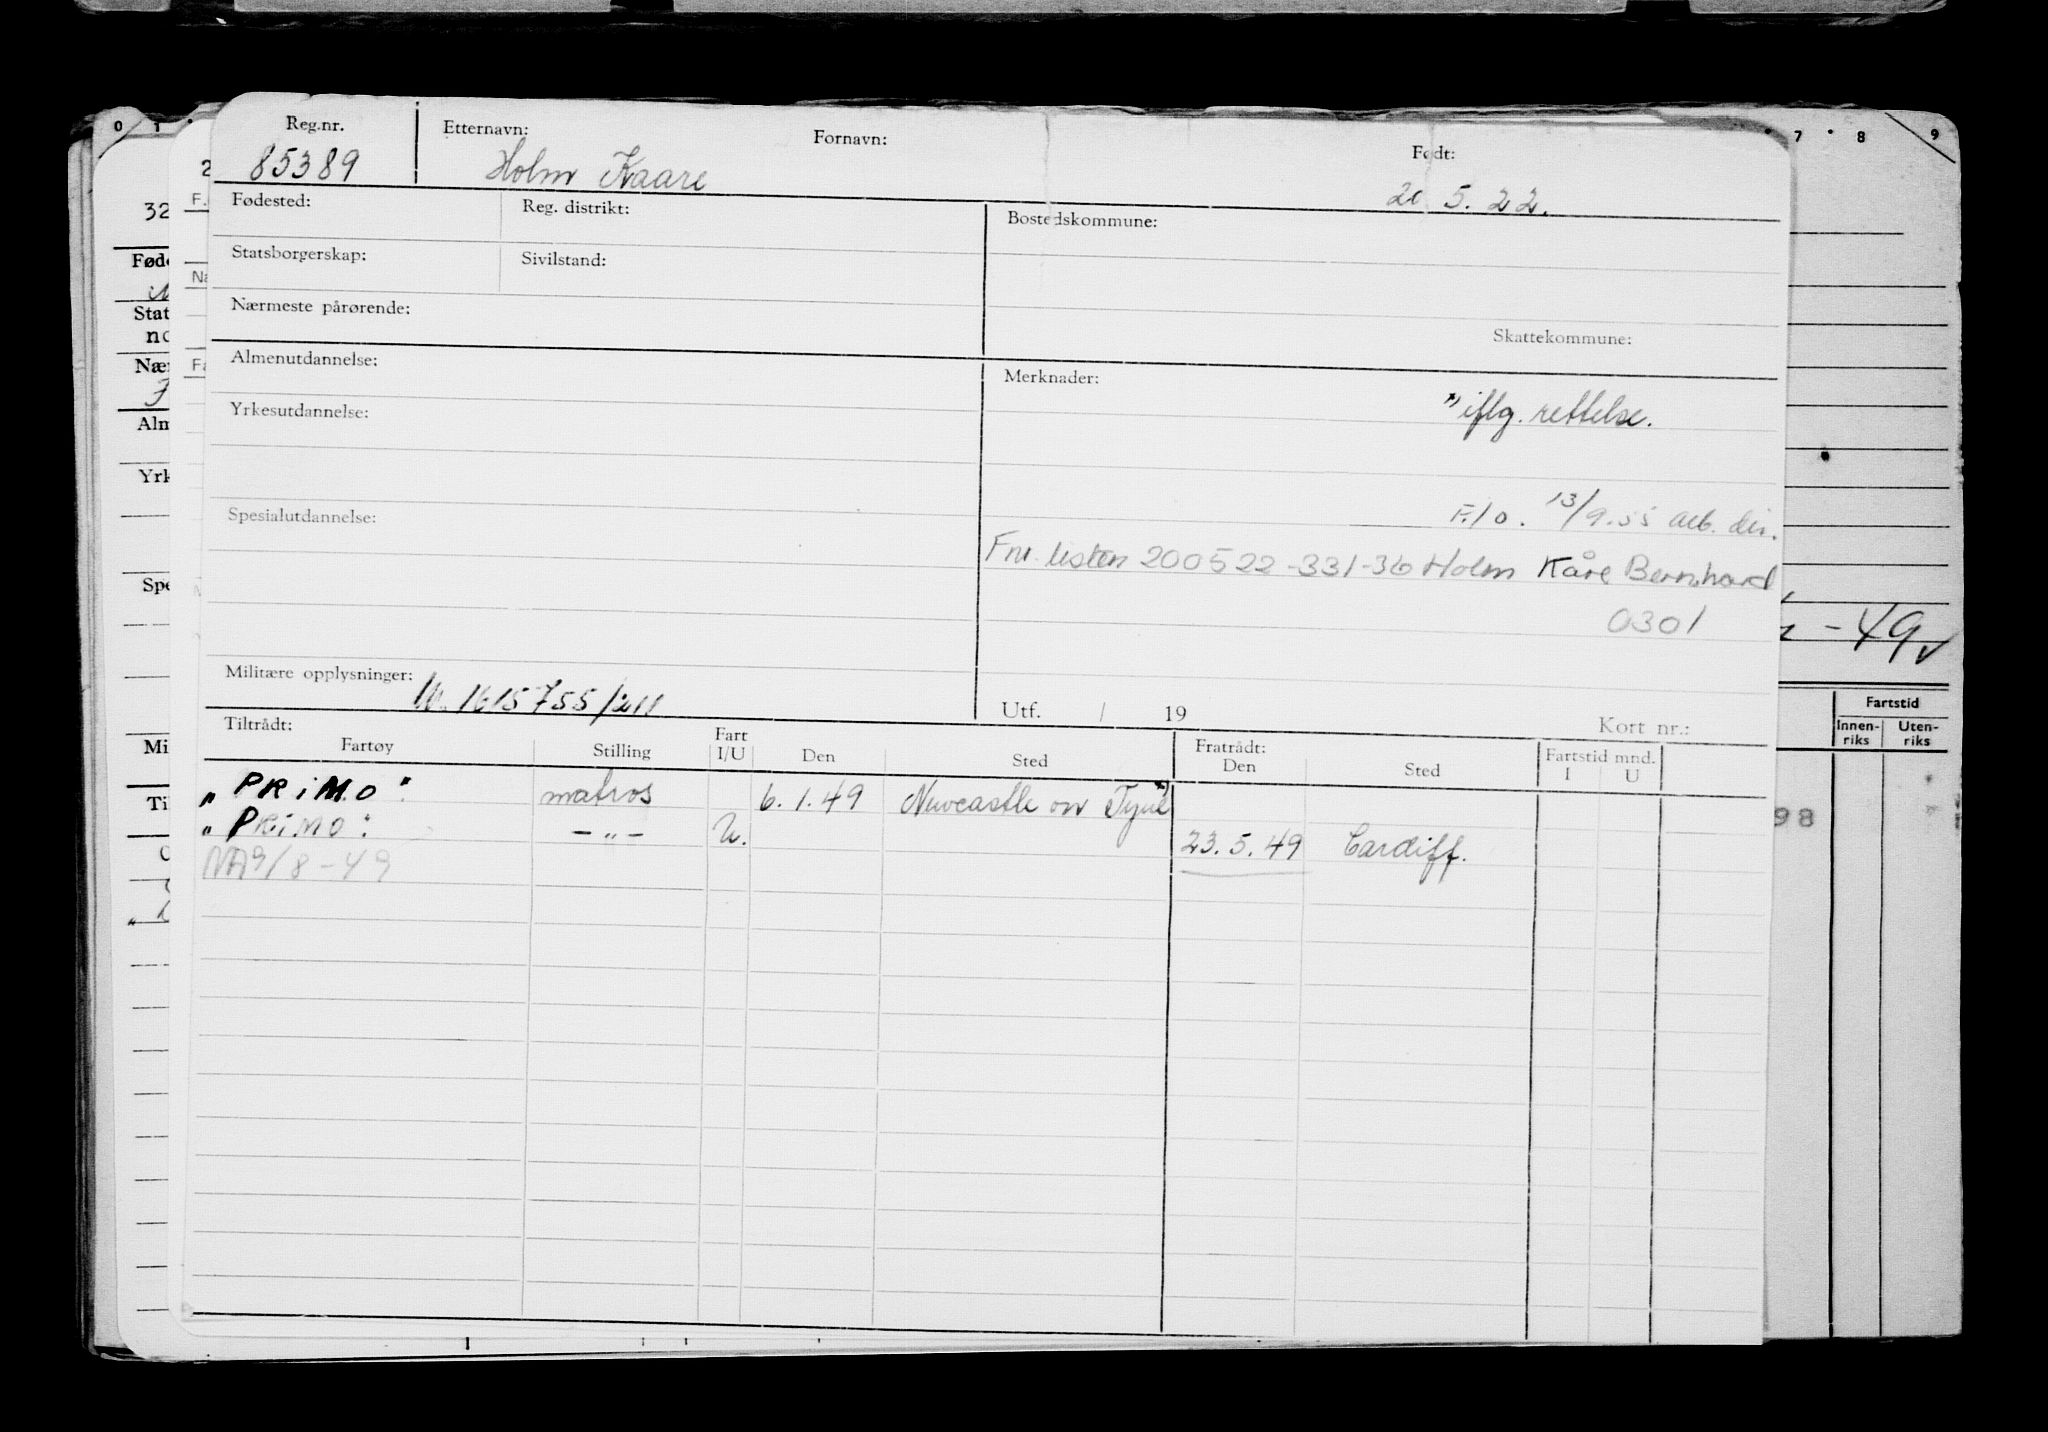 0 1 7 8 9
Reg.nr. Etternavn: Fornavn: Født:
85389 Holm Kaare 20.5.22.
Fødested: Reg. distrikt: Bostedskommune:
Statsborgerskap: Sivilstand:
Nærmeste pårørende: Skattekommune:
Almenutdannelse: Merknader:
Yrkesutdannelse: iflg. rettelse.
Spesialutdannelse: F.l o. 13/9.55 arb. dir.
Fnr. listen 200522-331-36 Holm Kåre Bernhard
0301
Militære opplysninger: M. 1615755/211
Utf. / 19 Kort nr.:
Tiltrådt: Fratrådt: Fartstid mnd.
Fartøy Stilling Fart I/U Den Sted Den Sted I U
"PRIMO" matros 6.1.49 Newcastle on Tyne
"PRIMO" -"- U. 23.5.49 Cardiff.
NA 9/8-49
32
Føde
Stat
no
Nær
Alm
Yrk
Spe
Mi
Til
-49
Fartstid
Innen-riks Uten-riks
98